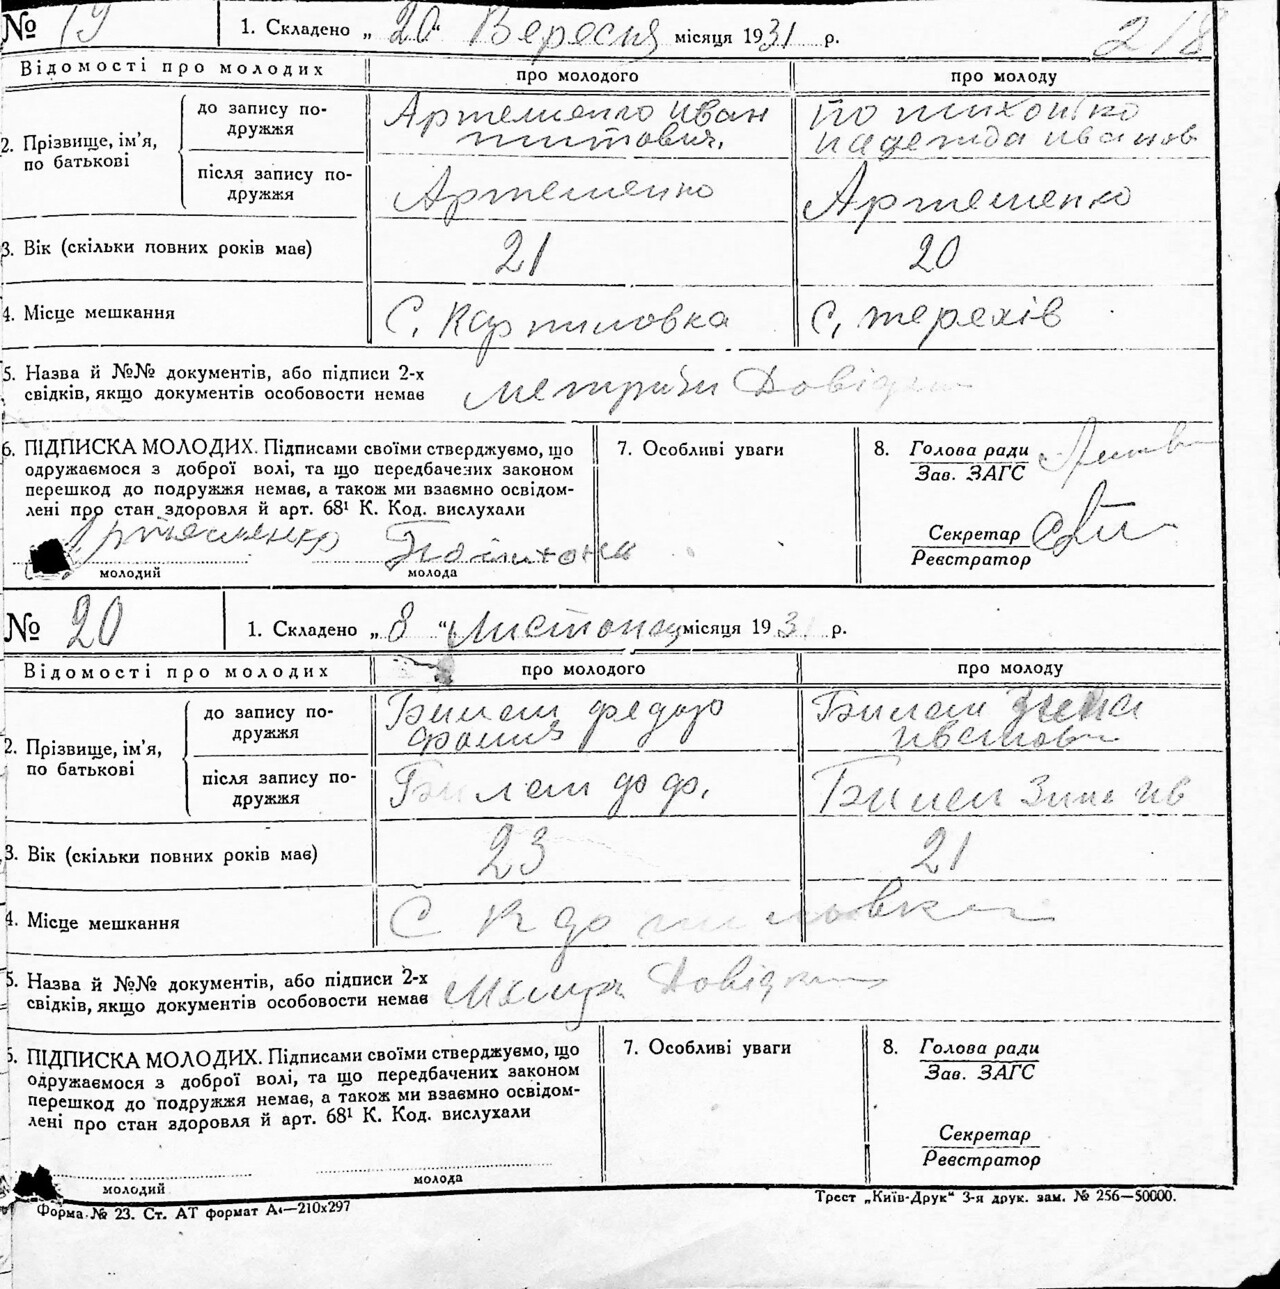 № 19 1. Складено „ 20 " Вересня місяця 1931 р. 218
Відомості про молодих про молодого про молоду
2. Прізвище, ім'я, по батькові
до запису подружжя Артеменко Иван Титович, Надежда Иванов
після запису подружжя Артеменко Артеменко
3. Вік (скільки повних років має) 21 20
4. Місце мешкання С. Карпиловка С. Терехів
5. Назва й №№ документів, або підписи 2-х
свідків, якщо документів особовости немає Метрики Довідки
6. ПІДПИСКА МОЛОДИХ. Підписами своїми стверджуємо, що
одружаємося з доброї волі, та що передбачених законом
перешкод до подружжя немає, а також ми взаємно освідом-
лені про стан здоровля й арт. 68¹ К. Код. вислухали
Артеменко
молодий молода
7. Особливі уваги
8. Голова ради
Зав. ЗАГС
Секретар
Реєстратор
№ 20 1. Складено „ 8 " Листопад місяця 193 р.
Відомості про молодих про молодого про молоду
2. Прізвище, ім'я, по батькові
до запису подружжя Билам Билам
після запису подружжя Билам Зина Ив
3. Вік (скільки повних років має) 23 21
4. Місце мешкання С
5. Назва й №№ документів, або підписи 2-х
свідків, якщо документів особовости немає Довідка
6. ПІДПИСКА МОЛОДИХ. Підписами своїми стверджуємо, що
одружаємося з доброї волі, та що передбачених законом
перешкод до подружжя немає, а також ми взаємно освідом-
лені про стан здоровля й арт. 68¹ К. Код. вислухали
молодий молода
7. Особливі уваги
8. Голова ради
Зав. ЗАГС
Секретар
Реєстратор
Форма № 23. Ст. АТ формат А₄—210х297
Трест „Київ-Друк" 3-я друк. зам. № 256—50000.